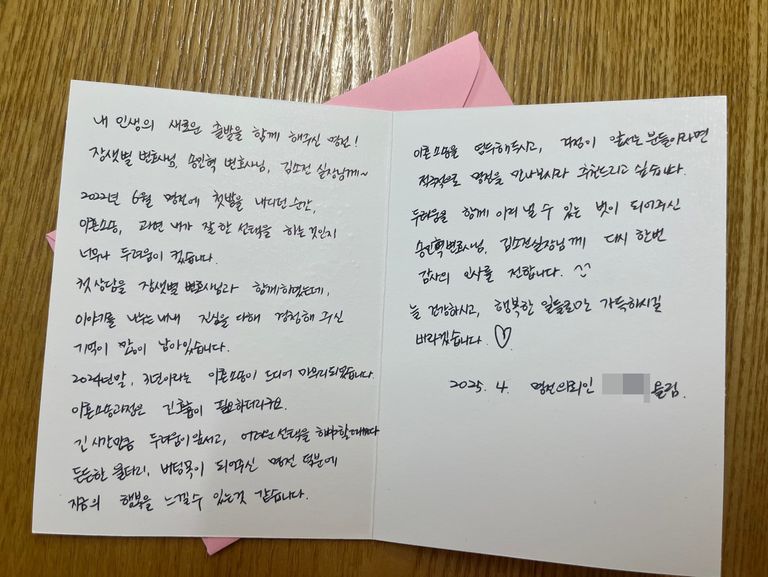 내 인생의 새로운 출발을 함께 해주신 명전!
장샛별 변호사님, 송인혁 변호사님, 김소진 실장님께~
2022년 6월 명전에 첫발을 내디던 순간,
이혼소송, 과연 내가 잘 한 선택을 하는것인지
너무나 두려움이 컸습니다.
첫 상담을 장샛별 변호사님과 함께하였는데,
이야기를 나누는내내 진심을 다해 경청해 주신
기억이 많이 남아있습니다.
2024년말, 3년이라는 이혼소송이 드디어 마무리되었습니다.
이혼소송과정은 긴호흡이 필요하더라구요.
긴 시간만큼 두려움이 앞서고, 어려운 선택을 해야할때마다
든든한 울타리, 버팀목이 되어주신 명전 덕분에
지금의 행복을 느낄수 있는것 같습니다.
이혼소송을 염두해두시고, 걱정이 앞서는 분들이라면
적극적으로 명전을 만나보시라 추천드리고 싶습니다.
두려움을 함께 이겨 낼 수 있는 벗이 되어주신
송인혁변호사님, 김소진실장님께 다시 한번
감사의 인사를 전합니다. ^^
늘 건강하시고, 행복한 일들로만 가득하시길
바라겠습니다. ♡
2025. 4. 명전의뢰인 올림.